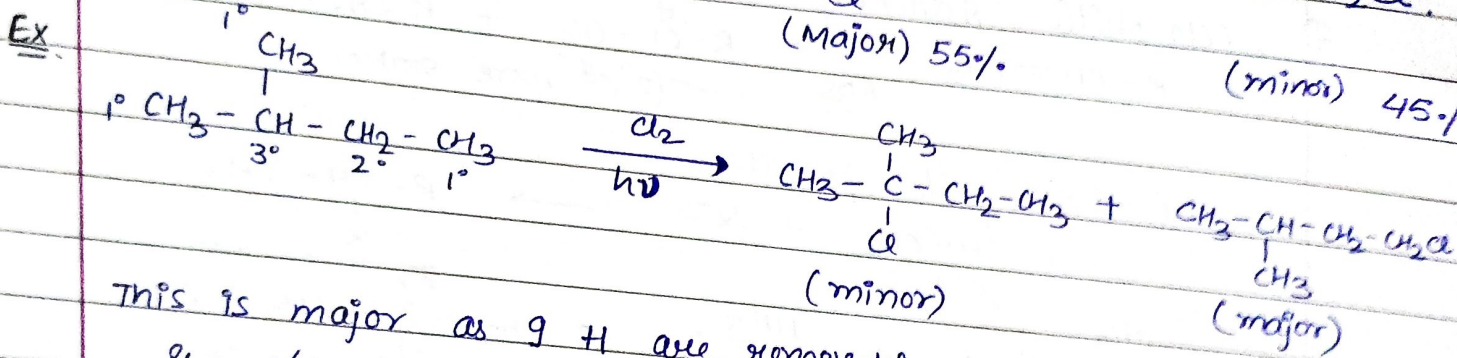 (Major) 55%
(minor) 45%
Ex.
1° CH3
1° CH3 - CH - CH2 - CH3
3° 2° 1°
Cl2
hν
CH3
CH3 - C - CH2 - CH3 + CH3 - CH - CH2 - CH2Cl
Cl CH3
(minor) (major)
This is major as 9 H are